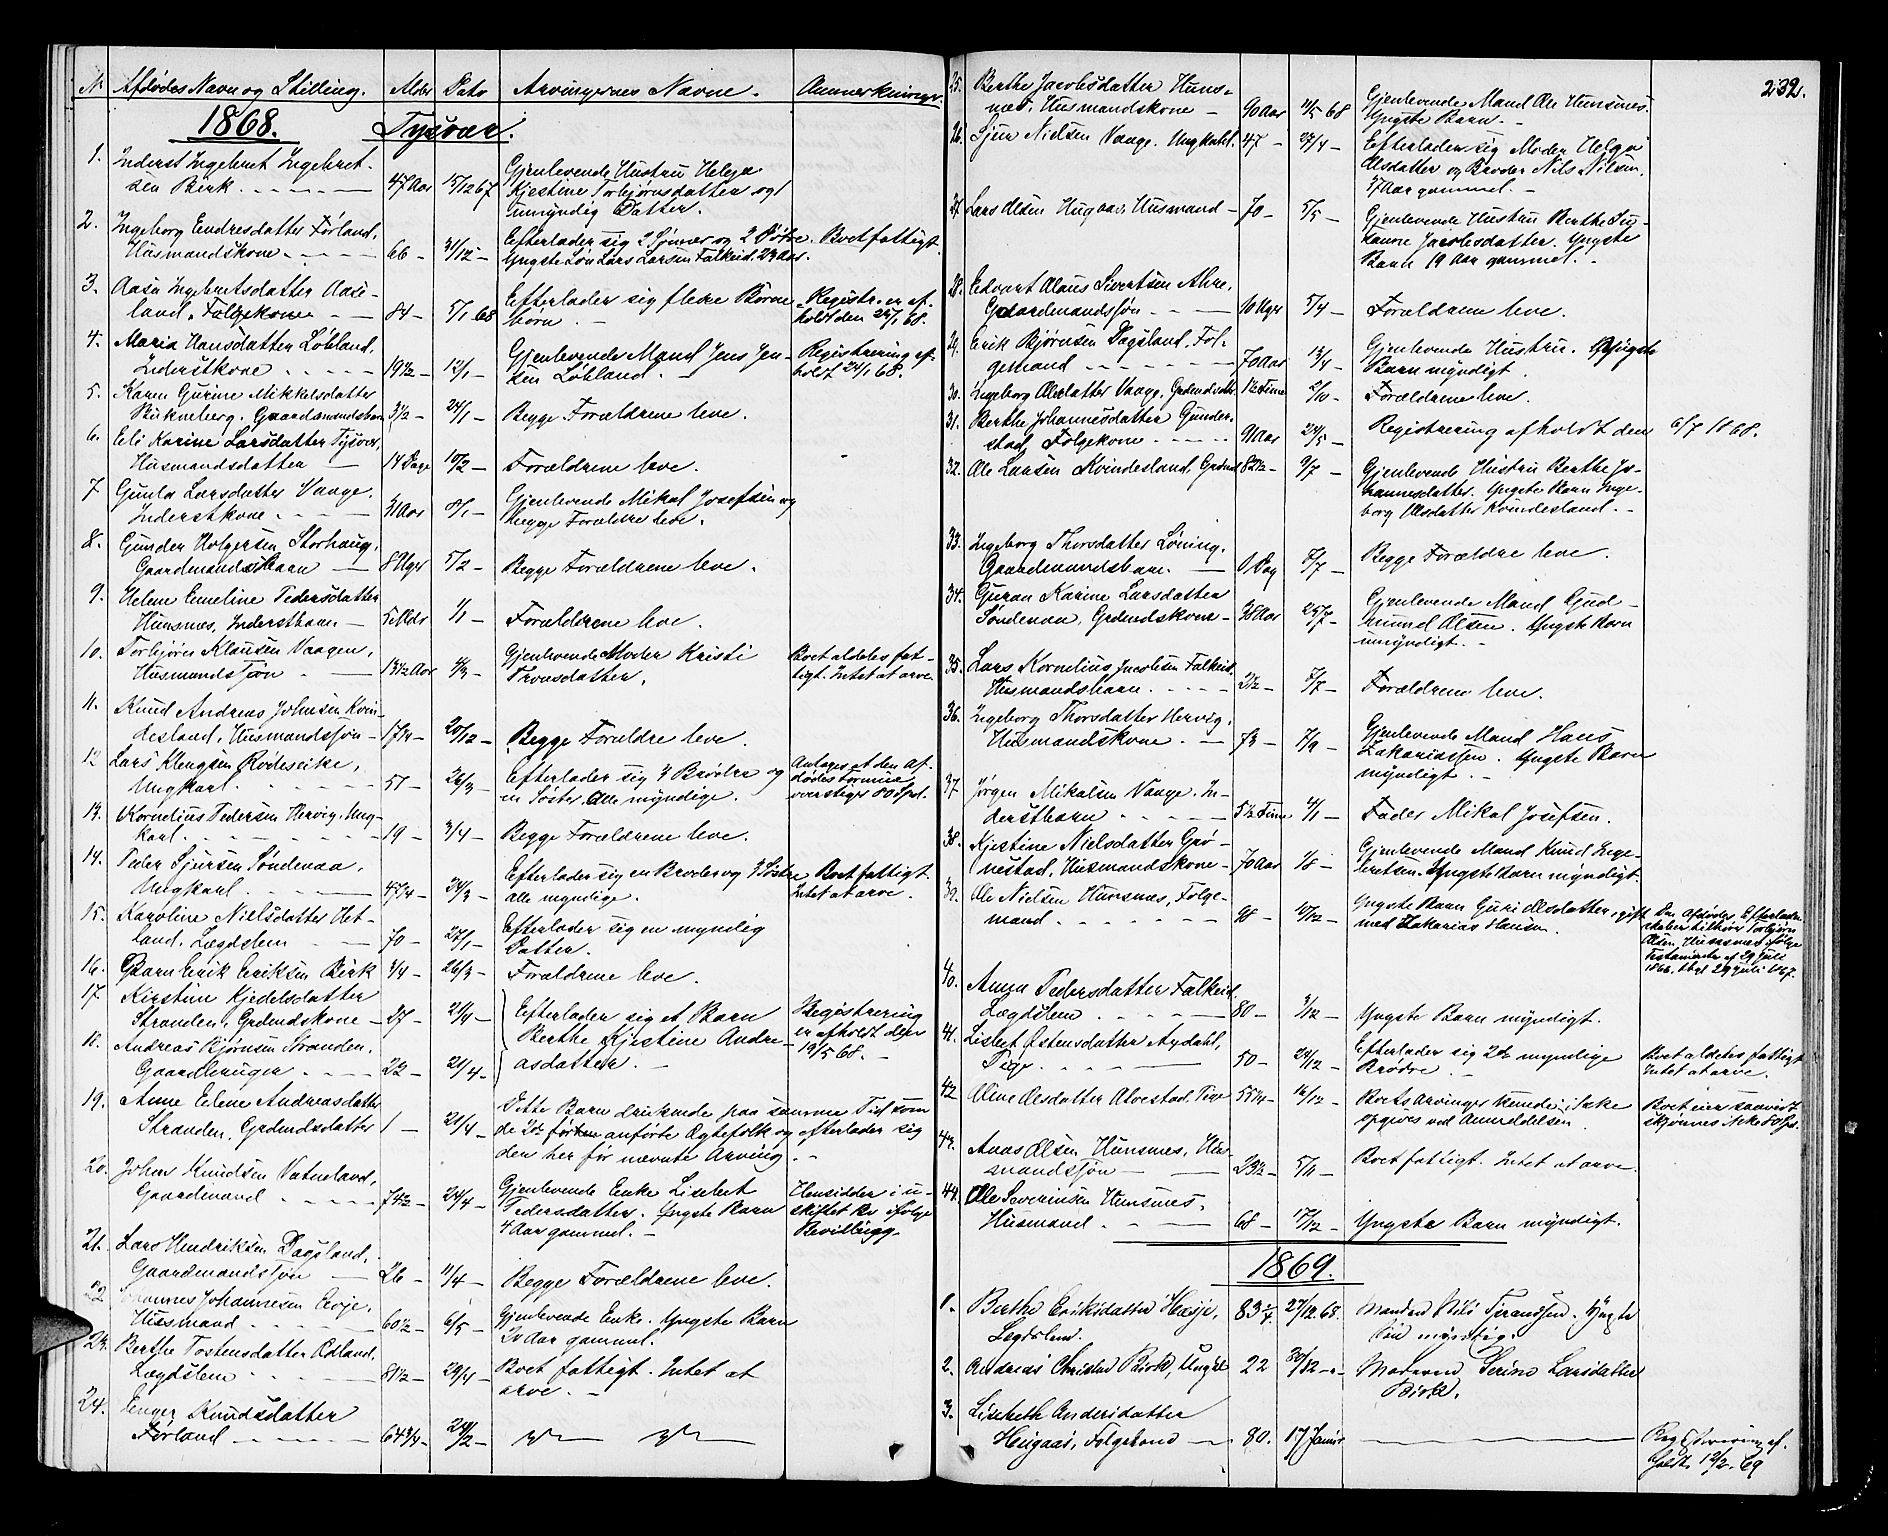 N. Afdødes Navn og Stilling. Alder Dato Arvingernes Navne. Anmerkninger.
1868. Tysvær.
1. Inderst Ingebret Ingebret-
sen Birk. 47 Aar 15/12 67 Gjenlevende Hustru Helga
Kjestine Torbjørnsdatter og 1
umyndig Datter.
2. Ingeborg Endresdatter Førland,
Husmandskone. 66 - 31/12 - Efterlader sig 2 Sønner og 2 Døtre. Boet fattigt.
Yngste Søn Lars Larsen Falkeid. 23 Aar.
3. Aasa Ingebretsdatter Aase-
land, Følgekone 84 - 5/1 68 Efterlader sig flere Børne- Registr. er af-
børn. - holdt den 24/1 68.
4. Maria Hansdatter Løbland,
Inderstkone 19 1/2 - 12/1 - Gjenlevende Mand Jens Jen- Registrering af-
sen Løbland. - holdt 24/1 68.
5. Karen Gurine Mikkelsdatter
Bukneberg. Gaardmandsbarn 3 1/2 - 24/1 - Begge Forældrene leve.
6. Eli Karine Larsdatter Tysvær,
Husmandsdatter 14 Dage 10/2 - Forældrene leve.
7. Gunla Larsdatter Vaage.
Inderstkone. 31 Aar 8/1 - Gjenlevende Mikal Josefsen og
begge Forældre leve.
8. Gunder Holgersen Storhaug,
Gaardmandsbarn 8 Uger 5/2 - Begge Forældrene leve.
9. Helene Emeline Pedersdatter
Hunsnes, Inderstbarn - 5 Mdr 1/1 - Forældrene leve.
10. Torbjørn Klausen Vaagen,
Husmandssøn 13 1/2 Aar 4/3 - Gjenlevende Moder Kristi Boet aldeles fat-
Tronsdatter. tigt. Intet at arve.
11. Knud Andreas Johnsen Kvin-
desland, Husmandssøn - 17 1/4 - 20/12 - Begge Forældre leve.
12 Lars Klengsen Rødesvike,
Ungkarl. 51 - 24/3 - Efterlader sig 3 Brødre og Antages at den Af-
en Søster. Alle myndige. dødes Formue
overstiger 80 Spd.
13. Kornelius Pedersen Hervig, Ung-
karl. 19 - 3/4 - Begge Forældrene leve.
14. Peder Sjursen Søndenaa,
Ungkarl 47 1/4 - 24/3 - Efterlader sig en Broder og 3 Søstre Boet fattigt.
alle myndige. Intet at arve.
15. Karoline Nielsdatter Het-
land, Lægdslem 70 - 27/1 - Efterlader sig en myndig
Datter.
16. Barn Erik Eriksen Birk 1/4 - 26/3 - Forældrene leve.
17 Kirstine Kjedelsdatter
Stranden, Grdmdskone - 27 - 21/4 - Efterlader sig et Barn Registrering
Berthe Kjestine Andre- er afholdt den
18. Andreas Bjørnsen Stranden.
Gaardbruger 22 - 21/4 - asdatter. - 19/5 68. -
19. Anne Elene Andreasdatter
Stranden, Grdmdsdatter 1 - 21/4 - Dette Barn druknede paa samme Tid som
de 2de før anførte Ægtefolk og efterlader sig
den her før nævnte Arving. -
20. Johan Knudsen Vatneland,
Gaardmand 74 1/2 - 24/4 - Gjenlevende Enke Lisebet Hensidder i u-
Pedersdatter. Yngste Barn skiftet Bo ifølge
4 Aar gammel. - Bevilling.
21. Lars Hendriksen Dagsland,
Gaardmandssøn 26 - 11/4 - Begge Forældrene leve.
22 Johannes Johannesen Eeoje,
Husmand 60 1/2 - 6/5 - Gjenlevende Enke. Yngste Barn
20 Aar gammel.
23. Berthe Tostensdatter Ødland,
Lægdslem 81 1/2 - 29/4 - Boet fattigt. Intet at
arve. -
24. Enger Knudsdatter
Førland 64 3/4 - 24/2 -
232.
25. Berthe Jacobsdatter Huns-
næs, Husmandskone - 90 Aar 11/5 68 Gjenlevende Mand Ole Hunsnes.
Yngste Barn. -
26. Sjur Nielsen Vaage. Ungkarl. 47 - 27/4 - Efterlader sig Moder Helga
Olsdatter og Broder Nils Nilsen,
17 Aar gammel. -
27. Lars Olsen Hugaas, Husmand - 70 - 5/5 - Gjenlevende Hustru Berthe Su-
sanne Jacobsdatter. Yngste
Barn 19 Aar gammel. -
28. Edvart Olaus Sivertsen Ahre,
Gaardmandssøn 10 Uger 5/4 - Forældrene leve.
29. Erik Bjørnsen Dagsland, Føl-
gemand 70 Aar 13/4 - Gjenlevende Hustru. Yngste
Barn myndigt.
30. Ingeborg Olesdatter Vaage, Grdmdsdtr. 1 1/2 Time 2/10 - Forældrene leve.
31. Berthe Johannesdatter Gunder-
stad, Følgekone 91 Aar 24/5 - Registrering afholdt den 6/7 1868.
32. Ole Larsen Kvindesland, Grdmd 82 1/2 - 9/7 - Gjenlevende Hustru Berthe Jo-
hannesdatter. Yngste Barn Inge-
borg Olsdatter Kvindesland. -
33. Ingeborg Thorsdatter Løning.
Gaardmandsbarn. 1 Dag 7/7 - Begge Forældre leve.
34. Guran Karine Larsdatter
Søndenaa, Grdmdskone - 38 Aar 25/7 - Gjenlevende Mand Gud-
mund Olsen. Yngste Barn
umyndigt. -
35. Lars Kornelius Jacobsen Falkeid.
Husmandsbarn. 2 1/2 - 7/7 - Forældrene leve.
36. Ingeborg Thorsdatter Hervig,
Husmandskone. 73 - 7/9 - Gjenlevende Mand Hans
Zakariassen. Yngste Barn
myndigt. -
37 Jørgen Mikalsen Vaage. In-
derstbarn 5 1/2 Time 4/1 - Fader Mikal Josefsen.
38. Kjestine Nielsdatter Grø-
nestad, Husmandskone - 70 Aar 1/8 - Gjenlevende Mand Knud Inge-
bretsen. Yngste Barn myndigt.
39. Ole Nielsen Hunsnes, Følge-
mand 98 - 10/12 - Yngste Barn Guri Olsdatter, gift Den Afdødes Efterladen-
med Zakarias Hansen. skaber tilhører Torbjørn
Olsen, Hunsnes ifølge
Testamente af 29 Juli
1866. thgl 29 Juli 1867.
40. Anna Pedersdatter Falkeid.
Lægdslem 80 - 3/12 - Yngste Barn myndigt.
41. Lisbet Østensdatter Aydahl,
Pige. 50 - 24/12 - Efterlader sig 2de myndige Boet aldeles fattigt
Brødre. - Intet at arve.
42 Oline Olsdatter Alvestad, Pige 55 1/4 - 16/12 - Boets Arvinger kunde ikke Boet eier saavidt
opgives ved Anmeldelsen. skjønnes ikke 80 Spd.
43. Aanas Olsen Hunsnes, Hus-
mandssøn 23 1/2 - 5/11 - Boet fattigt. Intet at arve.
44. Ole Severinsen Hunsnes,
Husmand. 68 - 17/12 - Yngste Barn myndigt.
1869.
1. Berthe Eriksdatter Hæsje, 83 3/4 27/12 68. Manden Nils Tjerandsen. Yngste
Legdslem. Søn myndig.
2. Andreas Christen Birk, Ungk. 22 30/12 - Moderen Serine Larsdatter
Birk.
3. Lisebeth Andersdatter
Hugaas, Følgekone 80. 17 Januar Registrering af-
holdt 12/2 69